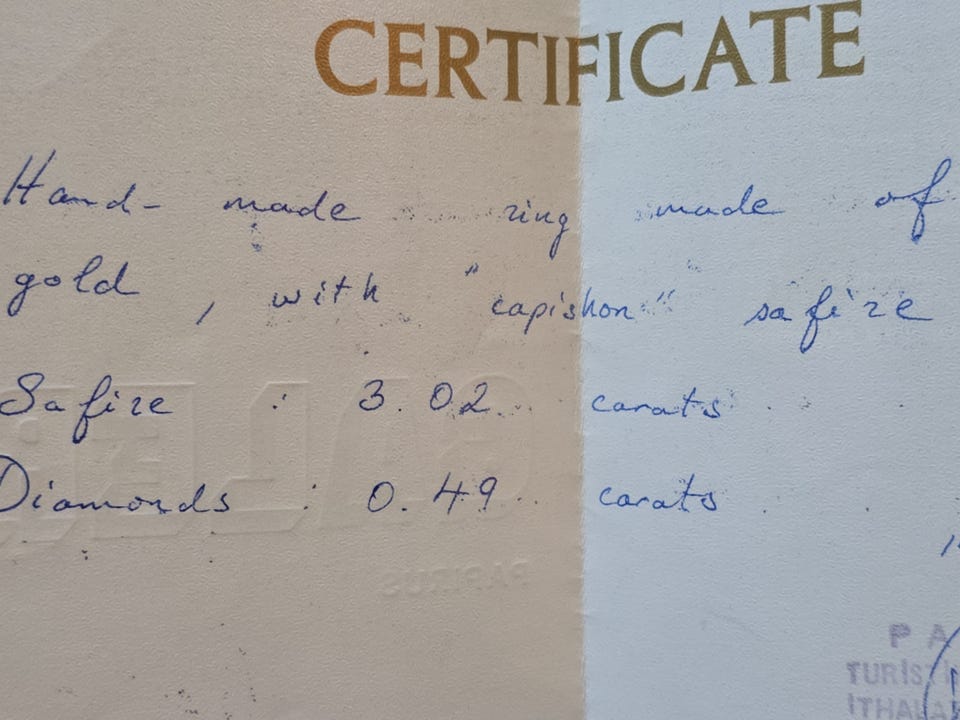 CERTIFICATE
Hand- made ring made of
gold, with "capishon" safire
Safire : 3.02 carats
Diamonds : 0.49 carats
PAPIRUS
P A
TURİSTİ
İTHALA